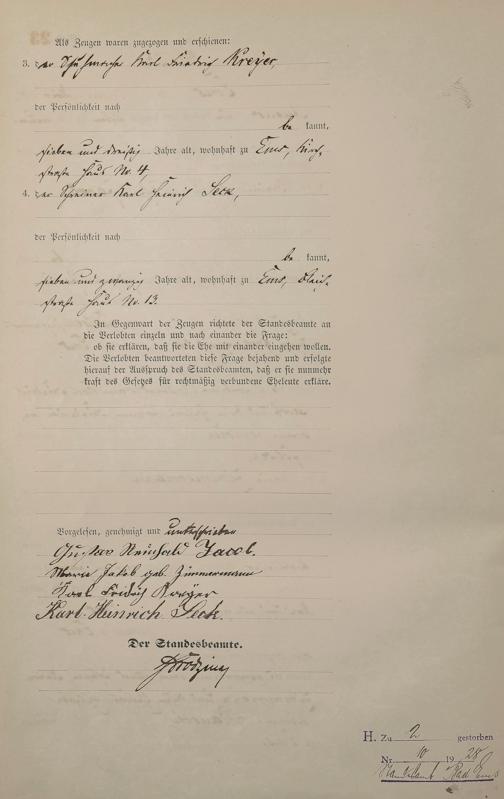 Als Zeugen waren zugezogen und erschienen:
3. der Schuhmacher Karl Friedrich Kreyer,
der Persönlichkeit nach
be kannt,
sieben und dreißig Jahre alt, wohnhaft zu Ems, Kirch-
straße Haus No. 4,
4. der Schreiner Karl Heinrich Seck,
der Persönlichkeit nach
be kannt,
sieben und zwanzig Jahre alt, wohnhaft zu Ems, Bleich-
straße Haus No. 13.
In Gegenwart der Zeugen richtete der Standesbeamte an
die Verlobten einzeln und nach einander die Frage:
ob sie erklären, daß sie die Ehe mit einander eingehen wollen.
Die Verlobten beantworteten diese Frage bejahend und erfolgte
hierauf der Ausspruch des Standesbeamten, daß er sie nunmehr
kraft des Gesetzes für rechtmäßig verbundene Eheleute erkläre.
Vorgelesen, genehmigt und unterschrieben
Gustav Reinhald Jacob.
Marie Jakob geb. Zimmermann
Karl Fridrich Kreyer
Karl Heinrich Seck.
Der Standesbeamte.
H. Zu 2 gestorben
Nr. 10 1928
Standesamt Bad Ems